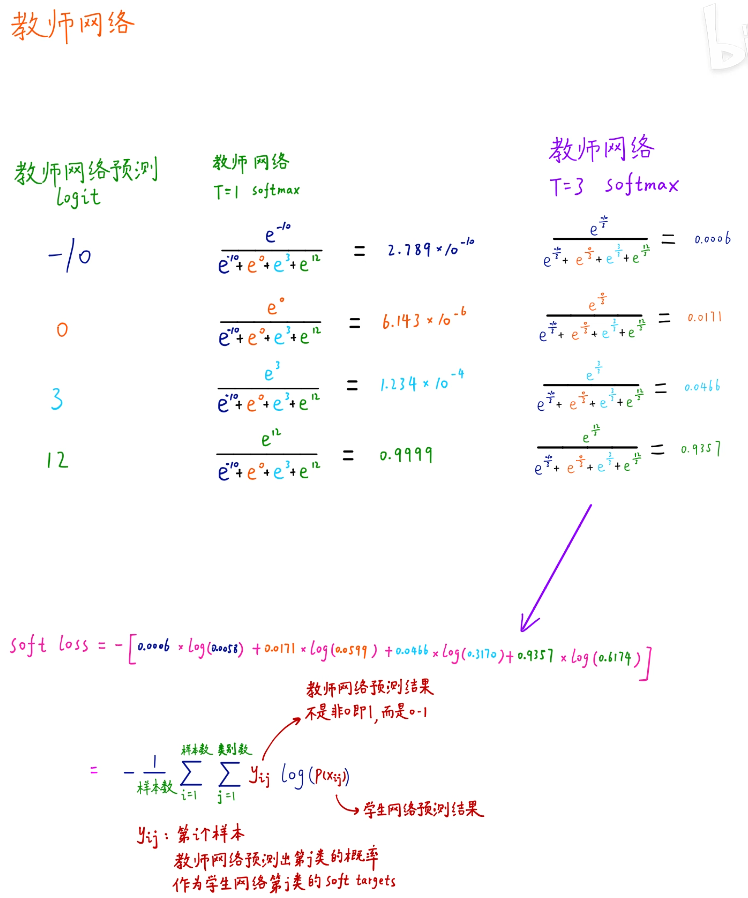 教师网络
教师网络预测 logit
教师网络 T=1 softmax
教师网络 T=3 softmax
-10
e^-10 / (e^-10 + e^0 + e^3 + e^12) = 2.789 × 10^-10
e^(-10/3) / (e^(-10/3) + e^(0/3) + e^(3/3) + e^(12/3)) = 0.0006
0
e^0 / (e^-10 + e^0 + e^3 + e^12) = 6.143 × 10^-6
e^(0/3) / (e^(-10/3) + e^(0/3) + e^(3/3) + e^(12/3)) = 0.0171
3
e^3 / (e^-10 + e^0 + e^3 + e^12) = 1.234 × 10^-4
e^(3/3) / (e^(-10/3) + e^(0/3) + e^(3/3) + e^(12/3)) = 0.0466
12
e^12 / (e^-10 + e^0 + e^3 + e^12) = 0.9999
e^(12/3) / (e^(-10/3) + e^(0/3) + e^(3/3) + e^(12/3)) = 0.9357
soft loss = -[0.0006 × log(0.0058) + 0.0171 × log(0.0599) + 0.0466 × log(0.3170) + 0.9357 × log(0.6174)]
教师网络预测结果
不是非0即1,而是0-1
= - 1/样本数 ∑(i=1, 样本数) ∑(j=1, 类别数) yij log(P(xij))
学生网络预测结果
yij: 第i个样本
教师网络预测出第j类的概率
作为学生网络第j类的 soft targets